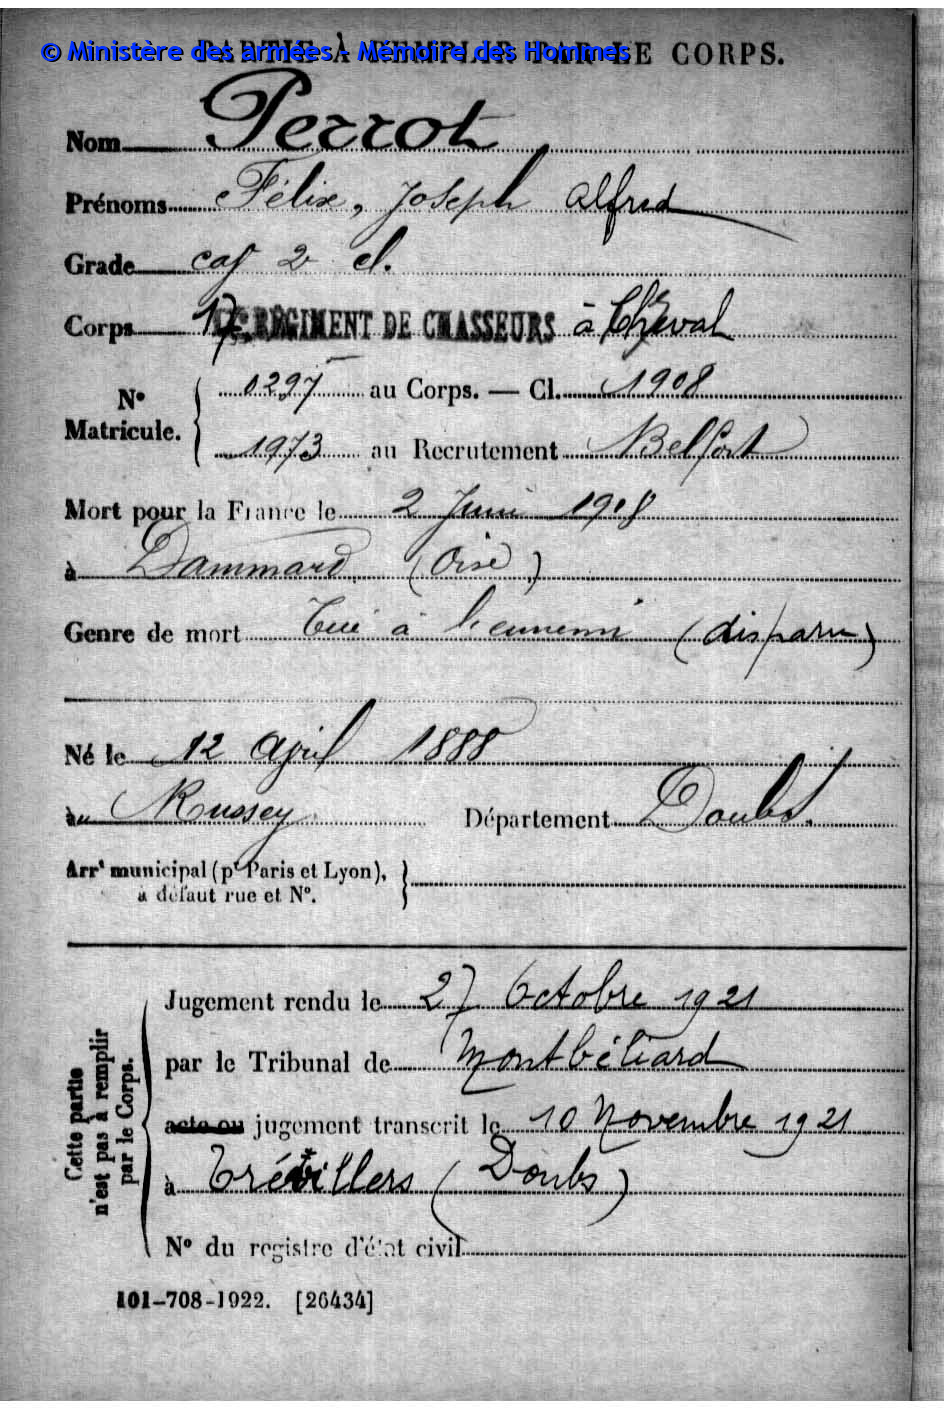 © Ministère des armées - Mémoire des Hommes
PARTIE À REMPLIR PAR LE CORPS.
Nom Perrot
Prénoms Félix, Joseph Alfred
Grade cav 2e cl.
Corps 17e RÉGIMENT DE CHASSEURS à Cheval
No Matricule. 0297 au Corps. — Cl. 1908
1973 au Recrutement Belfort
Mort pour la France le 2 Juin 1918
à Dammard (Oise)
Genre de mort Tué à l'ennemi (disparu)
Né le 12 Avril 1888
au Russey Département Doubs.
Arrt municipal (pr Paris et Lyon),
à défaut rue et No.
Cette partie
n'est pas à remplir
par le Corps.
Jugement rendu le 27 Octobre 1921
par le Tribunal de Montbéliard
acte ou jugement transcrit le 10 Novembre 1921
à Trévillers (Doubs)
No du registre d'état civil
101-708-1922. [26434]